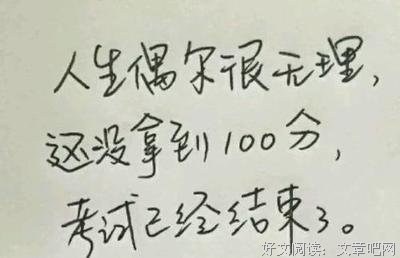 人生偶尔很无理，
还没拿到100分，
考试已经结束了。
好文阅读：文章吧网